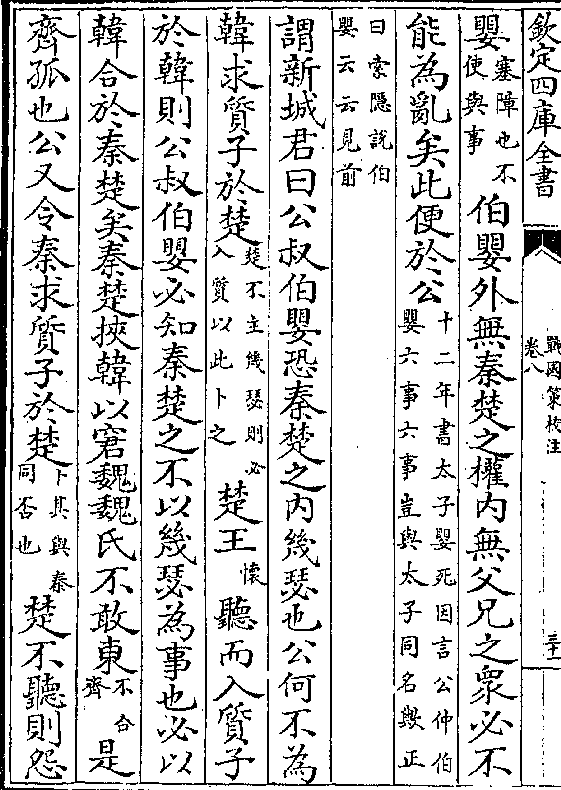 欽定四庫全書
戰國策校注
卷八
三十一
嬰塞障也不使與事伯嬰外無秦楚之權內無父兄之衆必不
能為亂矣此便於公十二年書太子嬰死因言公仲伯嬰六事六事豈與太子同名歟正
曰索隱說伯嬰云云見前
謂新城君曰公叔伯嬰恐秦楚之內幾瑟也公何不為
韓求質子於楚楚不主幾瑟則必入質以此卜之楚王懷聽而入質子
於韓則公叔伯嬰必知秦楚之不以幾瑟為事也必以
韓合於秦楚矣秦楚挾韓以窘魏魏氏不敢東不合齊是
齊孤也公又令秦求質子於楚卜其與秦同否也楚不聽則怨